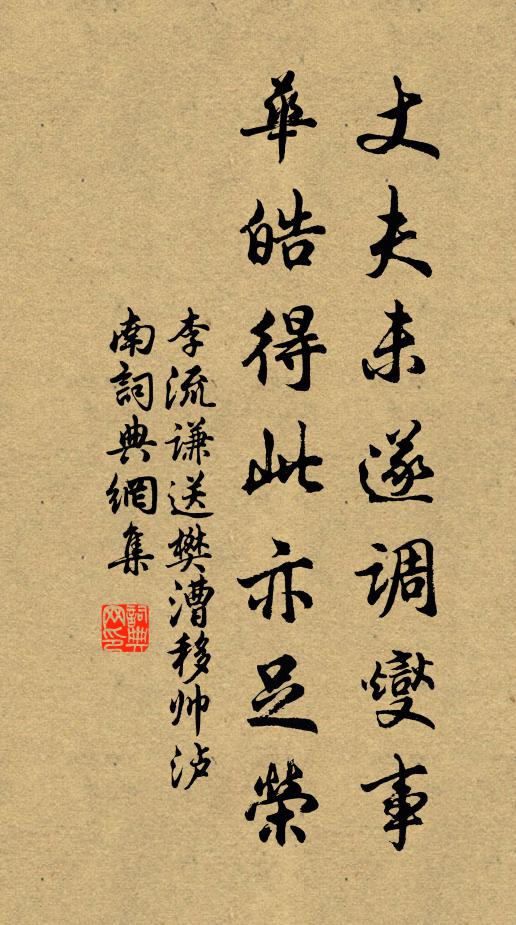 丈夫未遂調燮事
華皓得此亦足榮
李流谦送樊漕移帅泸
南詞典網集
詞典網印